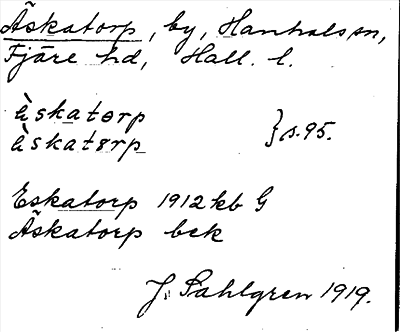 Äskatorp, by, Hanhals sn,
Fjäre hd, Hall. l.
èskatorp
èskatørp } s. 95.
Eskatorp 1912 kb G
Äskatorp bek
J. Sahlgren 1919.